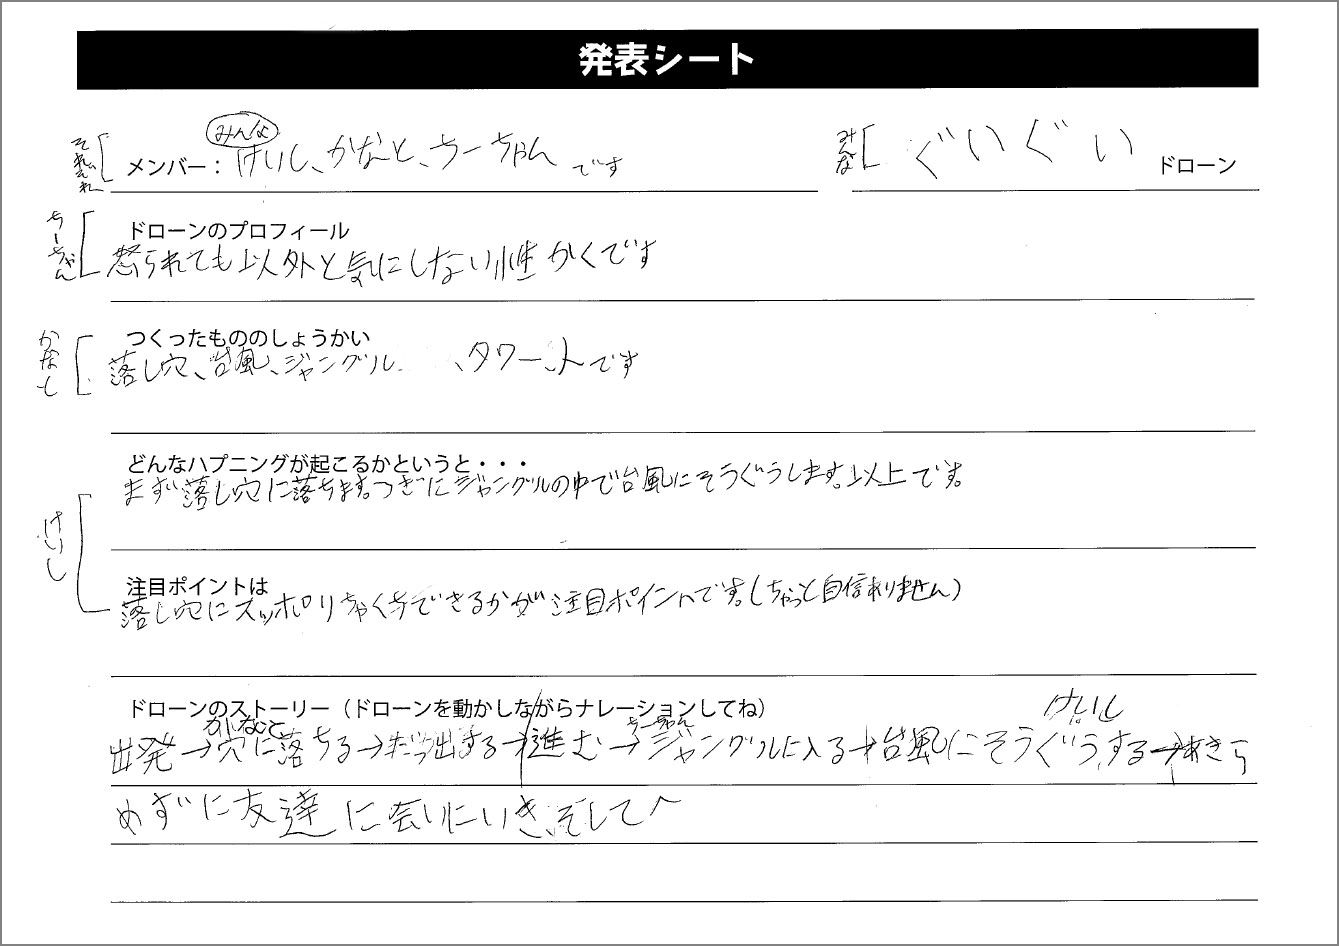 発表シート
それぞれ
みんな
メンバー：けいし、かなと、ちーちゃん です
みんな
ぐいぐい ドローン
ちーちゃん
ドローンのプロフィール
怒られても以外と気にしない性かくです
かなと
つくったもののしょうかい
落し穴、台風、ジャングル、タワー、人です
どんなハプニングが起こるかというと・・・
まず落し穴に落ちます。つぎにジャングルの中で台風にそうぐうします。以上です。
けいし
注目ポイントは
落し穴にスッポリちゃく地できるかが注目ポイントです。(ちょっと自信ありません)
ドローンのストーリー（ドローンを動かしながらナレーションしてね）
かなと ちーちゃん けいし
出発→穴に落ちる→だっ出する→進む→ジャングルに入る→台風にそうぐうする→あきら
めずに友達に会いにいき、そして